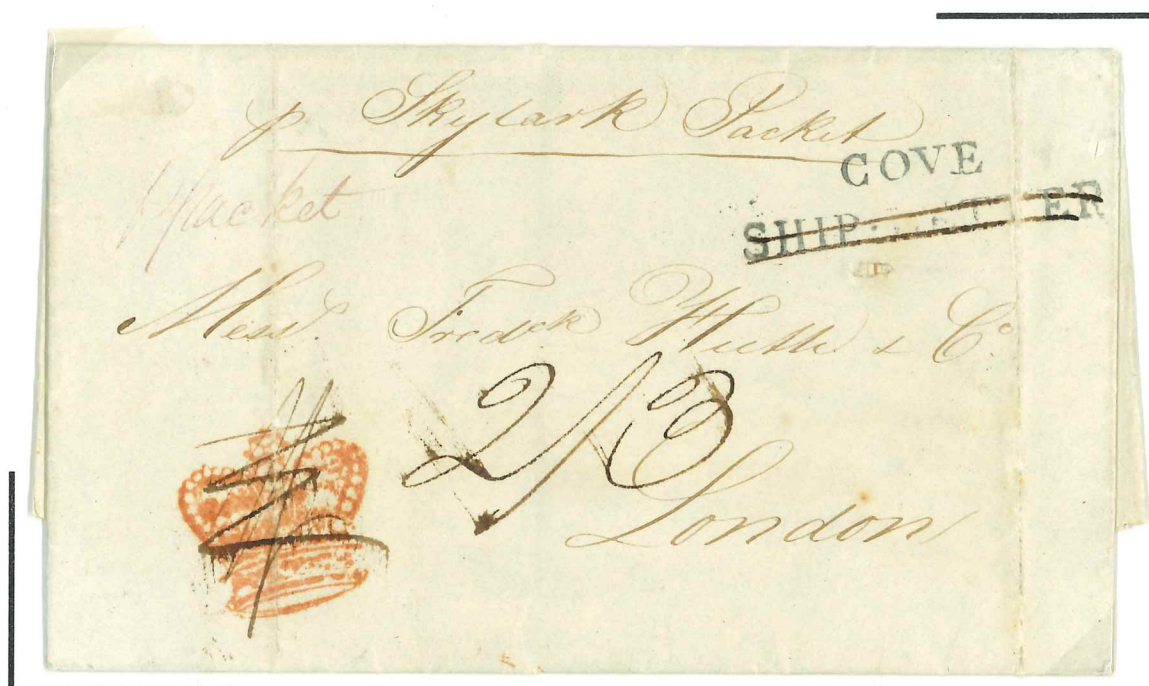 p Skylark Packet
COVE
SHIP-LETTER
Packet
Mess.rs Fredck Huth & Co
2/3
London